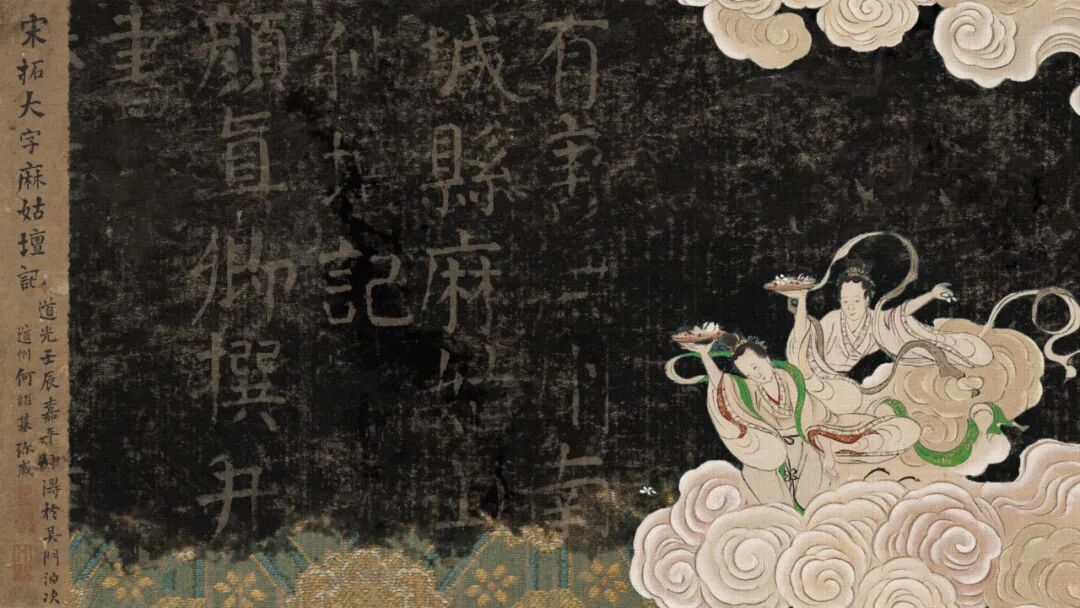 有唐州南
城縣麻姑山
仙壇記
顏眞卿撰并
書
宋拓大字麻姑壇記
道光壬辰嘉平淂於吴門泊次
道州何紹基珎藏